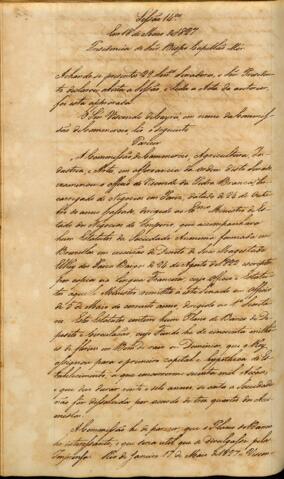 Sessão 14.ª
Em 18 de Maio de 1827
Presidencia do Snr. Bispo Capellão Mór.
Achando-se presentes 29 Snrs. Senadores, o Snr. Presiden-
te declarou aberta a Sessão, e lida a Acta da anterior,
foi esta approvada.
O Snr. Visconde de Cayrú, em nome da Commis-
são de Commercio, leo o seguinte
Parecer
A Commissão de Commercio, Agricultura, In-
dustria, e Artes, em observancia da ordem deste Senado,
examinou o officio do Visconde da Pedra Branca, En-
carregado de Negocios em Paris, datado de 26 de Outu-
bro do anno passado, dirigido ao Ministro de Es-
tado dos Negocios do Imperio, que acompanhou
hum Estatutos da Sociedade Anonima formada em
Bruxellas em execução do Decreto de Sua Magestade
ElRey dos Paizes Baixos de 28 de Agosto de 1822
por copia na Lingua Franceza, cujo officio e Estatu-
tos o Ministro remetteo a este Senado em officio
de 5 de Maio do corrente anno, dirigido ao Secreta-
rio. Estes Estatutos contem hum Plano de Banco de De-
posito e Circulação cujo Fundo he de cincoenta milhões
de florins em Bens de raiz e Dominios, que o Rey
assignou para o primeiro capital, e hypotheca do Es-
tabelecimento, e que concorrem sessenta mil Acções,
e que deve durar vinte e sete annos, se antes a Sociedade
não for dissolvida por acordo de tres quartos dos Acci-
onistas.
A Commissão he de parecer, que o Plano do Banco
he interessante, e que será util que se divulgasse pela
Imprensa. Rio de Janeiro 17 de Maio de 1827. Viscon-